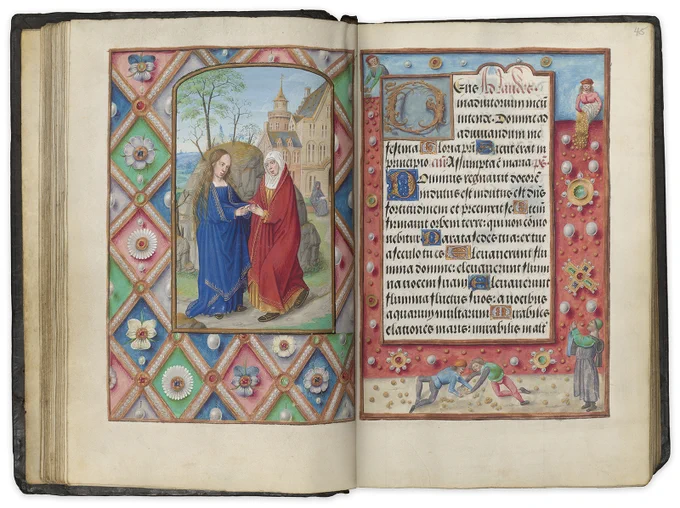 Deus Ad laudes.
in adiutorium meū
intende. Domine ad
adiuuandum me
festina Gloria pri Sicut erat in
principio. añ Assumpta ē maria. ps
Dominus regnauit decorē
indutus est: indutus est dñs
fortitudinem et precinxit se Etem̄
firmauit orbem terre: qui non cōmo
uebitur Parata sedes tua ex tuc
a seculo tu es Eleuauerunt flu
mina domine: eleuauerunt flumi
na uocem suam Eleuauerunt
flumina fluctus suos: a uocibus
aquarum multarum Mirabiles
elationes maris: mirabilis in alt